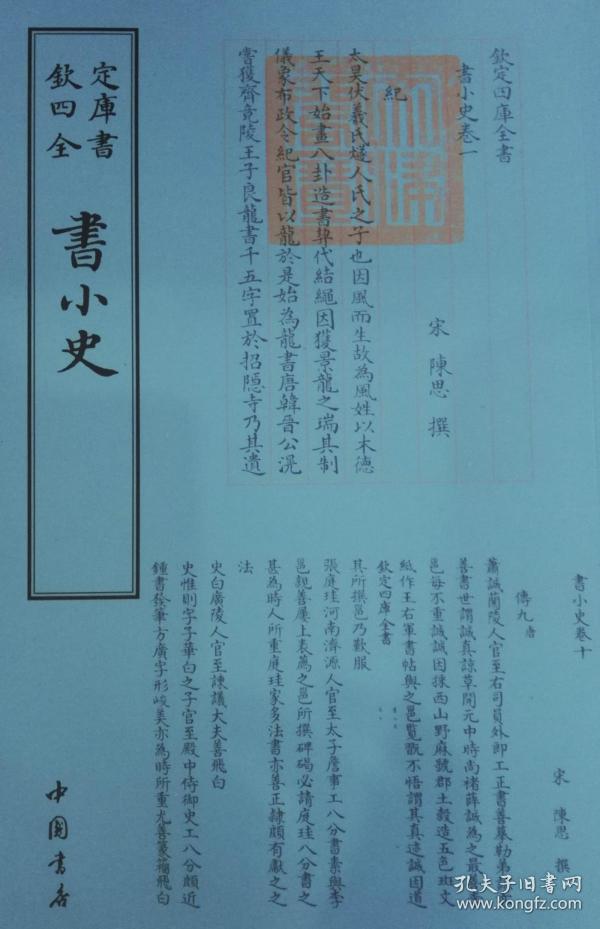 欽定四庫全書
書小史
中國書店
欽定四庫全書
書小史卷一
宋 陳思 撰
紀
太昊伏羲氏燧人氏之子也因風而生故為風姓以木德
王天下始畫八卦造書契代結繩因獲景龍之瑞其制
儀象布政令紀官皆以龍於是始為龍書唐韓晉公滉
嘗獲齊竟陵王子良龍書千五字置於招隱寺乃其遺
書小史卷十
宋 陳思 撰
傳九 唐
蕭誠蘭陵人官至右司員外郎工正書善摹勒弟
善書世謂誠真諒草開元中時尚褚薛誠為之最
邕每不重誠誠因採西山野麻號郡土穀造五色斑文
紙作王右軍書帖與之邕覽翫不悟謂其真迹誠因道
欽定四庫全書
其所撰邕乃歎服
張庭珪河南濟源人官至太子詹事工八分書素與李
邕親善屢上表薦之邕所撰碑碣必請庭珪八分書之
甚為時人所重庭珪家多法書亦善正隸頗有獻之之
法
史白廣陵人官至諫議大夫善飛白
史惟則字子華白之子官至殿中侍御史工八分頗近
鍾書發筆方廣字形峻美亦為時所重尤善篆籀飛白
孔夫子旧书网
www.kongfz.com